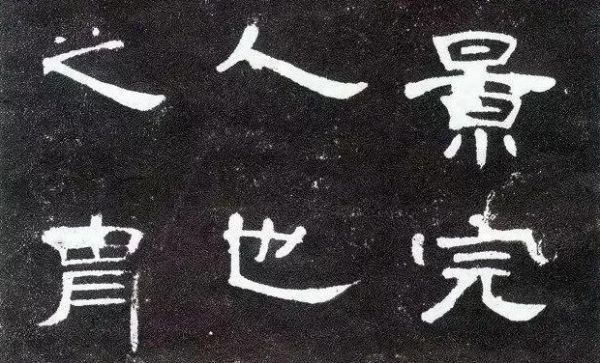 景完
人也
之胄